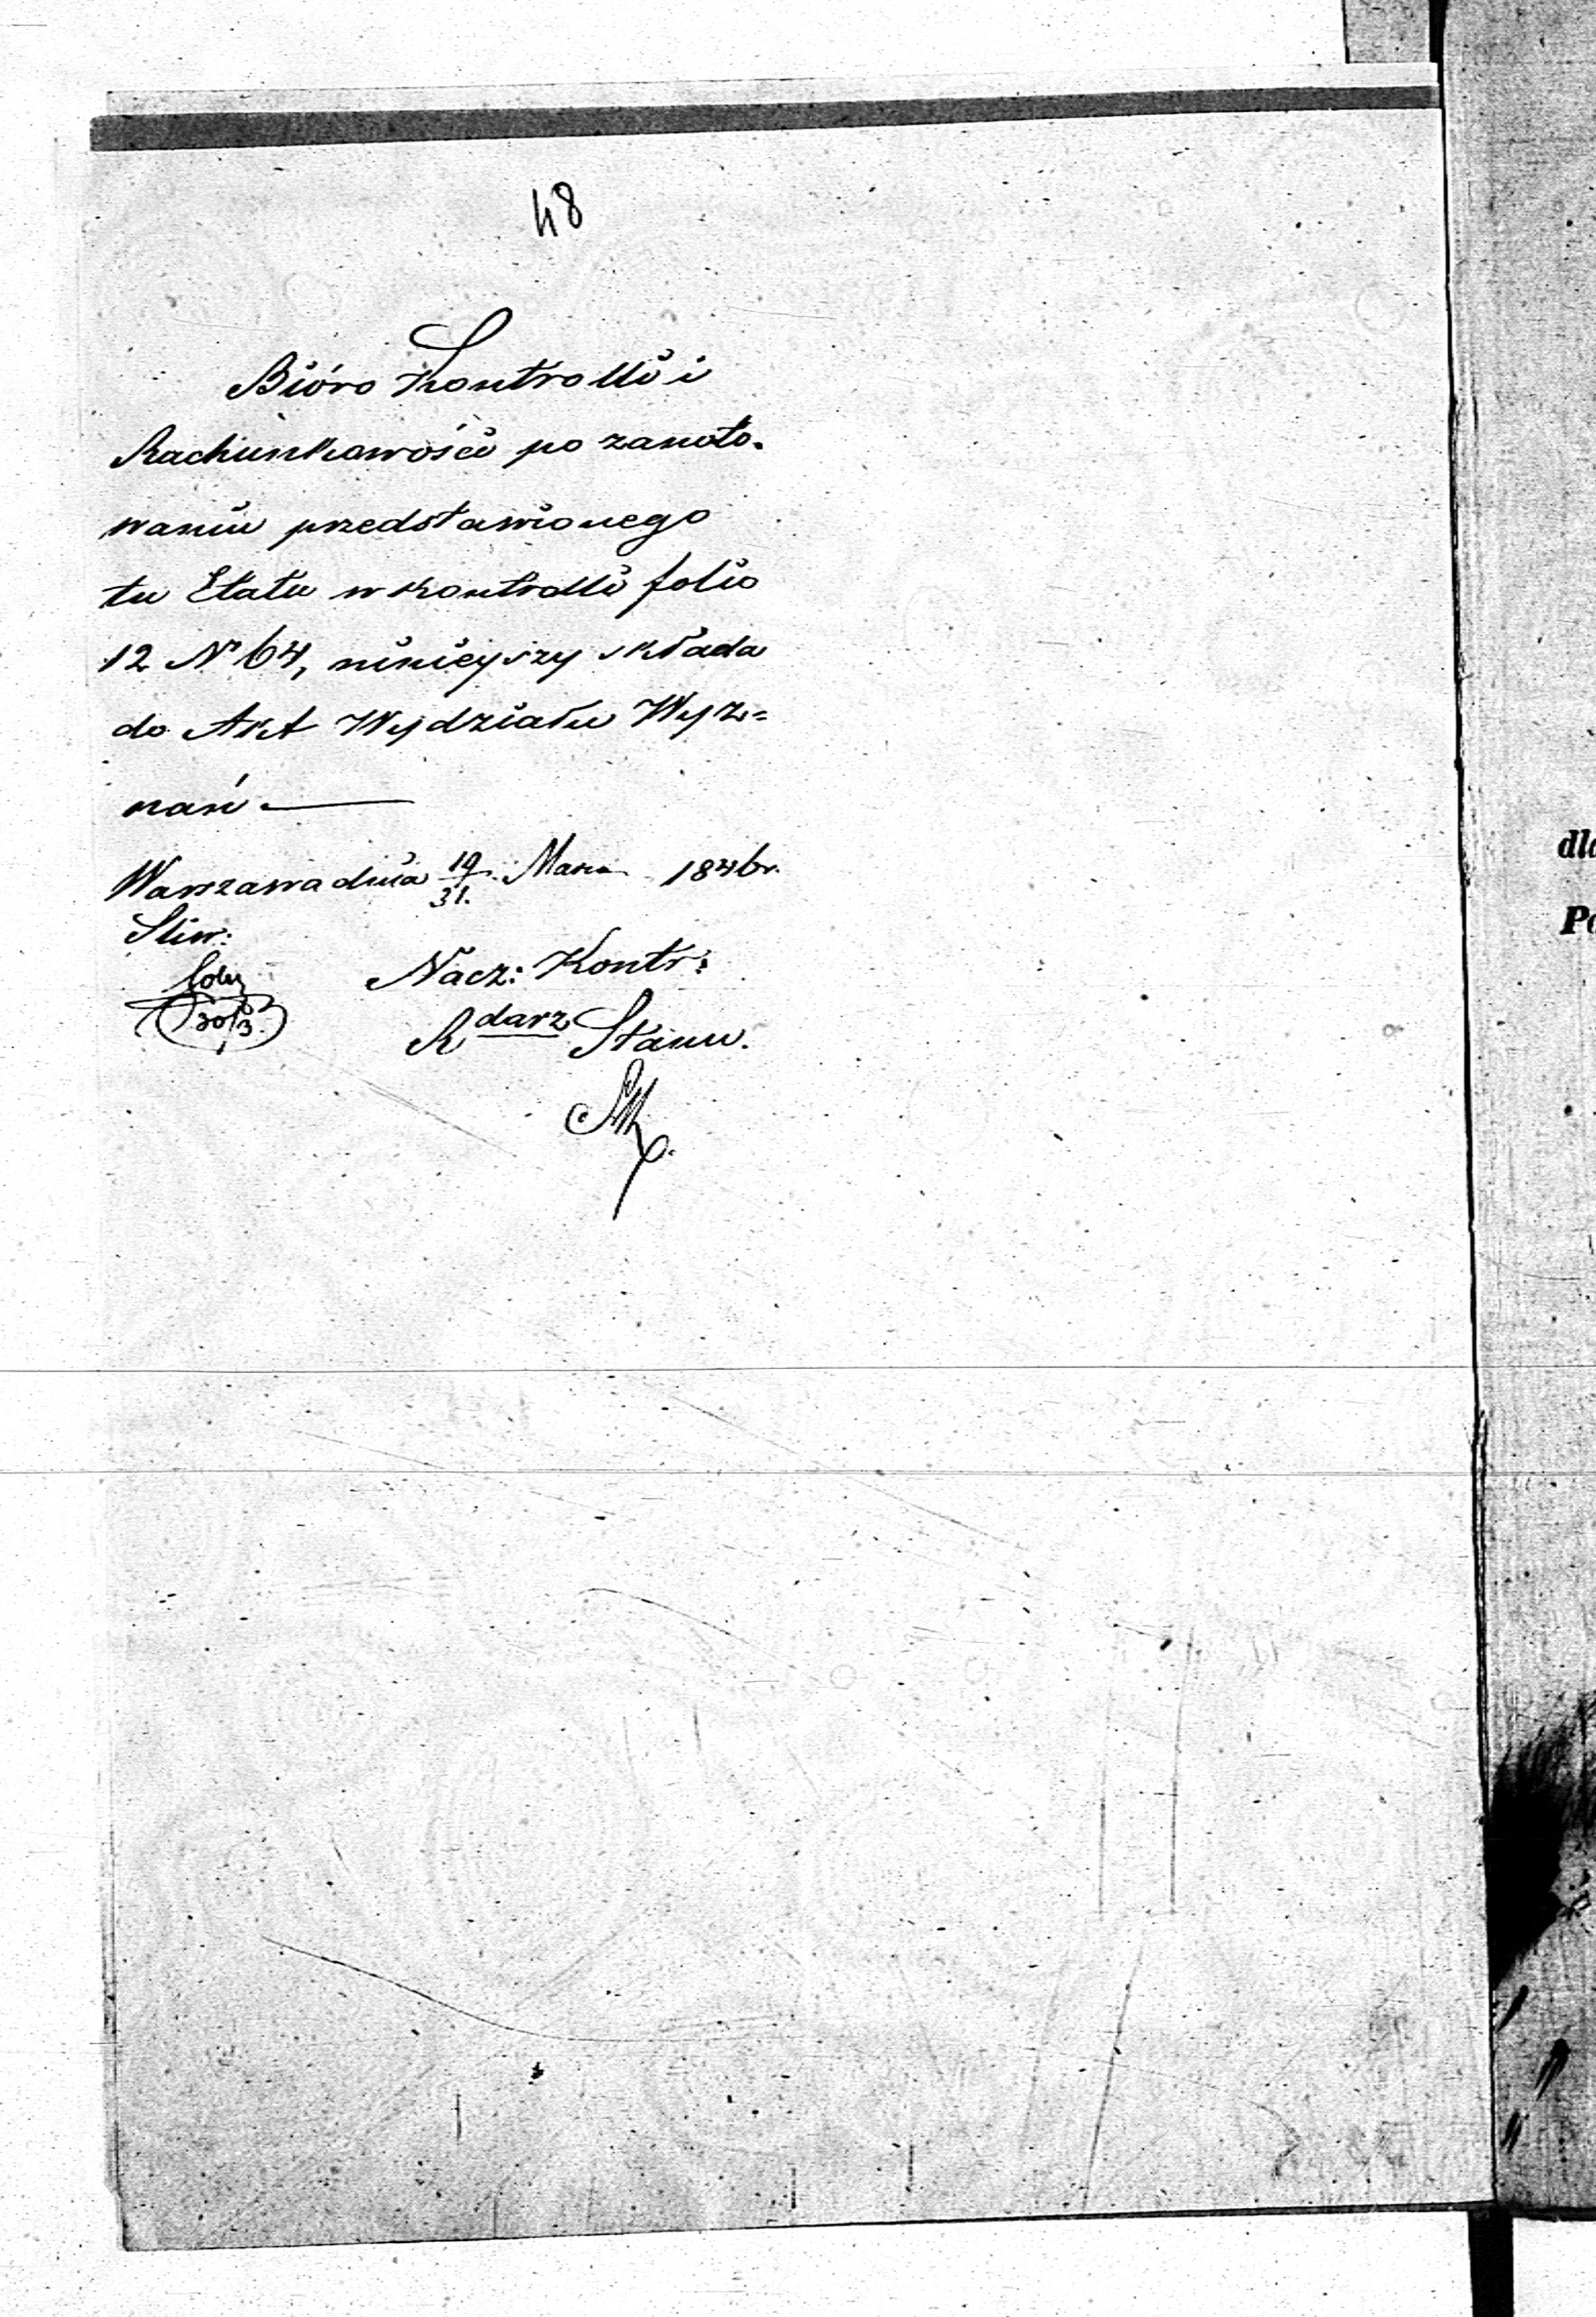 48
Bióro Kontrolli i
Rachunkowości po zanoto-
waniu przedstawionego
tu Etatu w kontrolli folio
12 N° 64, ninieyszy składa
do Akt Wydziału Wyz=
nań
Warszawa dnia 19/31. Marca 1846 r.
Nacz: Kontr:
Rdarz Stanu.
30/3.
dla